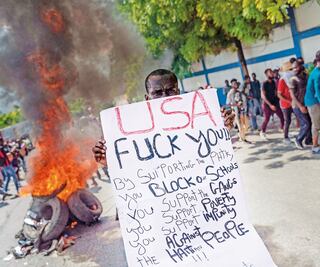 USA
FUCK YOU!!
BY SUPPORTING THE
YOU BLOCK OUR SCHOOLS
YOU SUPPORT THE GANGS
YOU SUPPORT POVERTY
YOU SUPPORT IMPUNITY
AGAINST PEOPLE
THE HAITIAN !!!